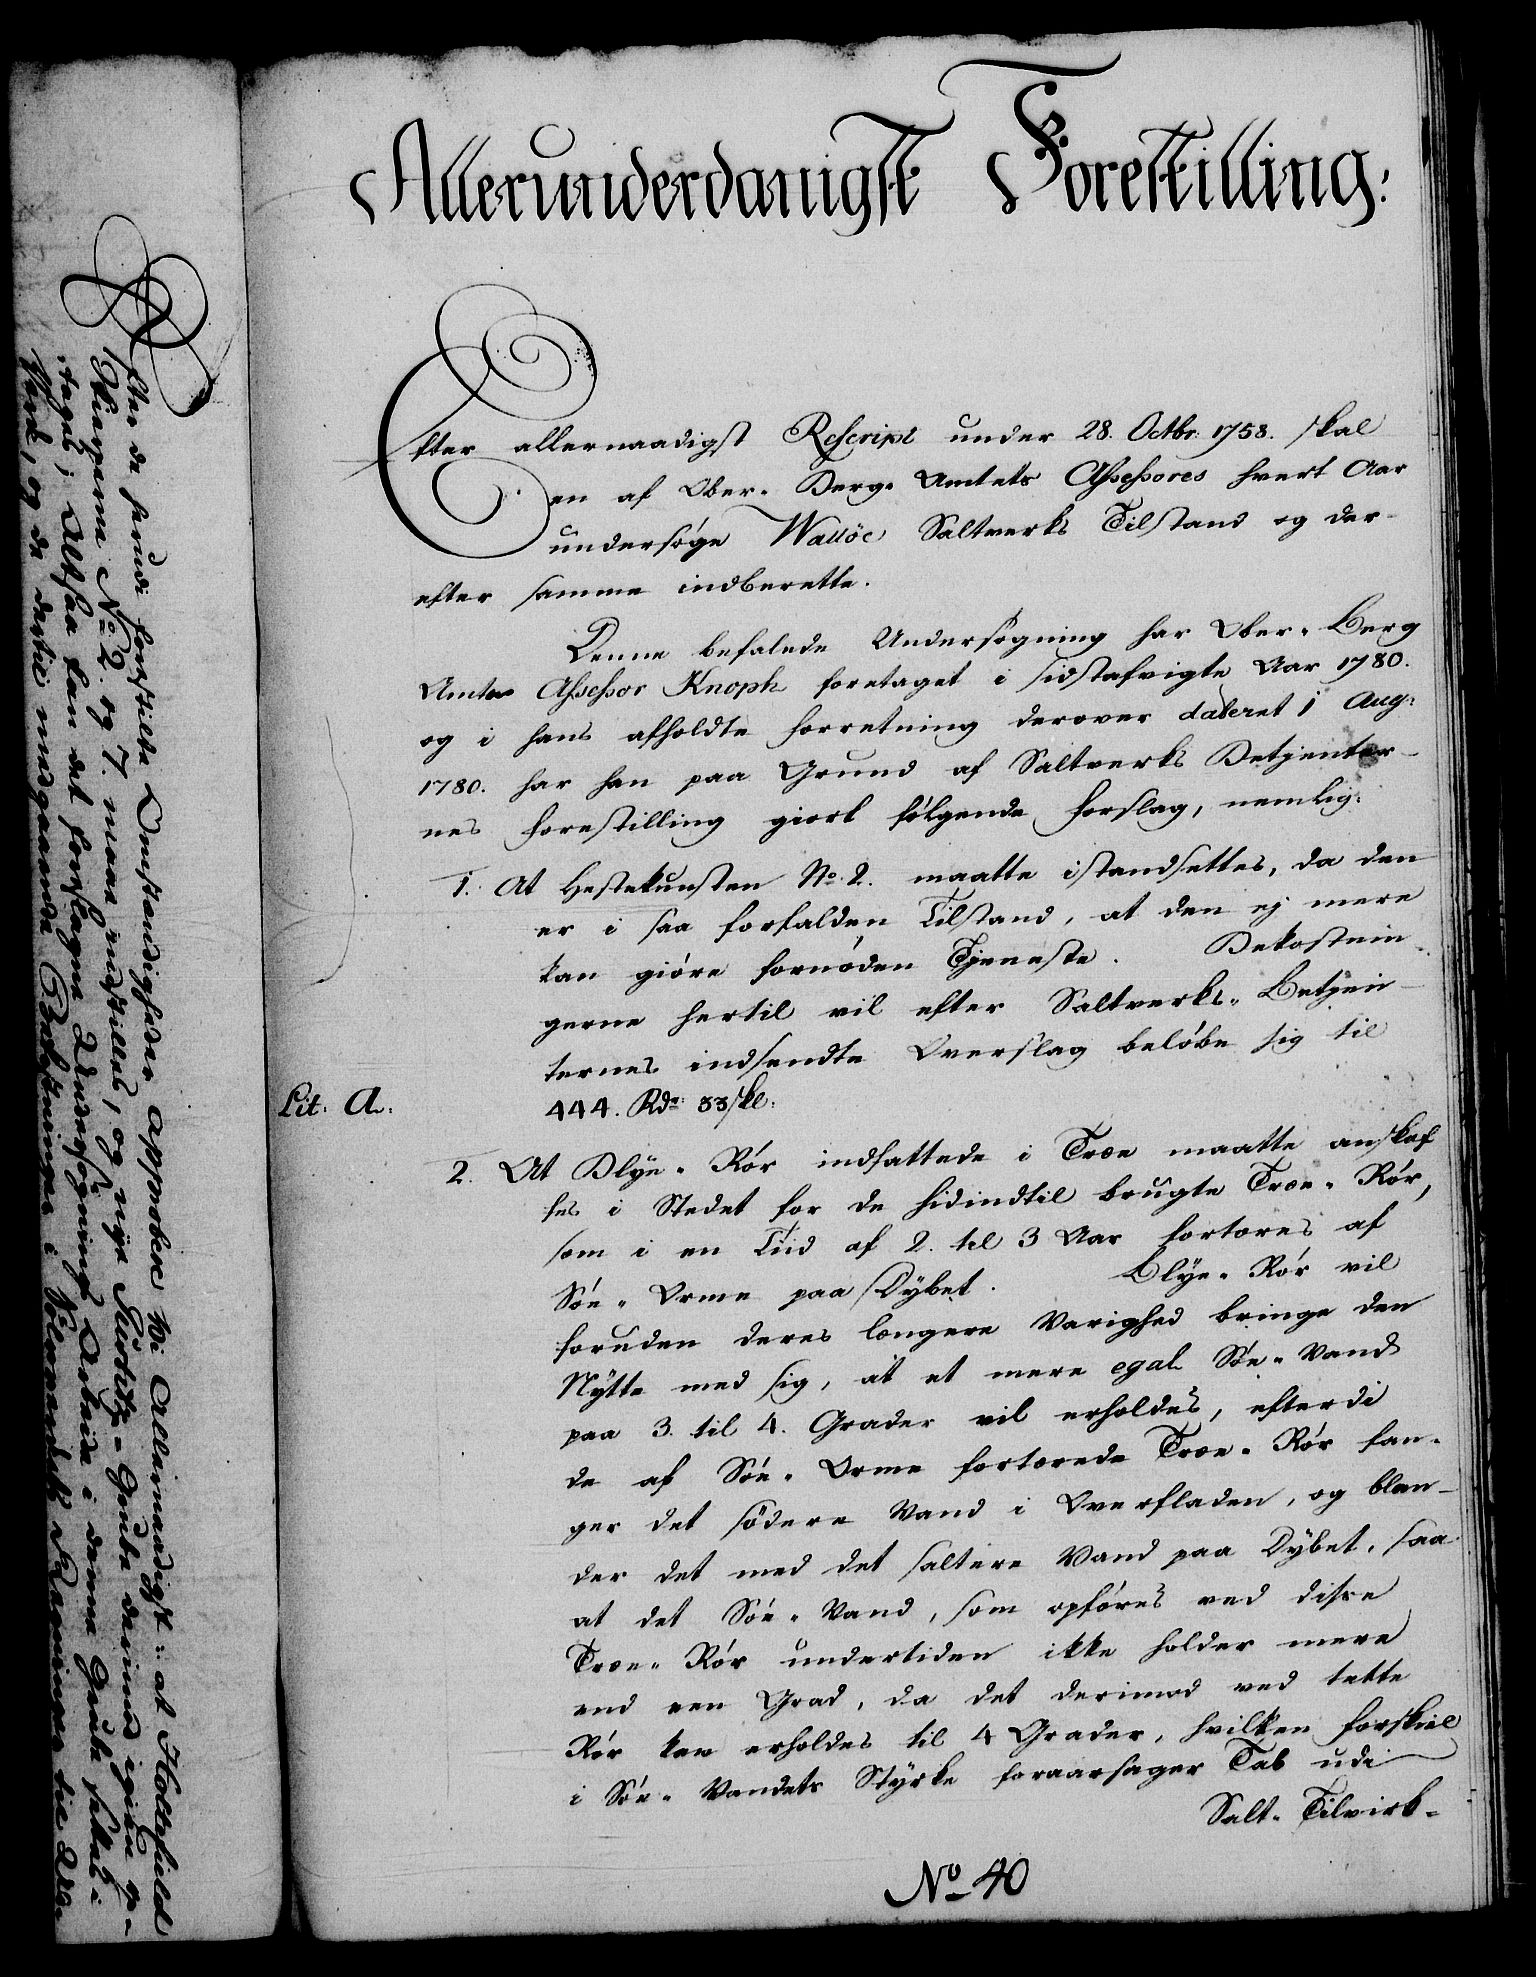 Allerunderdanigst Forestilling:
Efter allernaadigst Rescript under 28. Octbr: 1758. skal
en af Ober-Berg-Amtets Assessores hvert Aar
undersøge Walløe Saltverks Tilstand og der-
efter samme indberette.
Denne befalede Undersøgning har Ober-Berg
Amts Assessor Knoph foretaget i sidstafvigte Aar 1780.
og i hans afholdte Forretning derover dateret 1 Aug:
1780. har han paa Grund af Saltverks Betjenter-
nes Forestilling giort følgende Forslag, nemlig:
1. At Hestekunsten No. 2. maatte istandsettes, da den
er i saa forfalden Tilstand, at den ej mere
kan giøre fornøden Tjeneste. Bekostnin-
gerne hertil vil efter Saltverks-Betjen-
ternes indsendte Overslag beløbe sig til
Lit: A. 444. Rdr 33 skl:
2. At Blÿe-Rør indfattede i Træe maatte anskaf
fes i Stedet for de hidindtil brugte Træe-Rør,
som i en Tiid af 2. til 3 Aar fortæres af
Søe-Orme paa Dÿbet. Blÿe-Rør vil
foruden deres længere Varighed bringe den
Nÿtte med sig, at et mere egal Søe-Vand
paa 3. til 4. Grader vil erholdes, efterdi
de af Søe-Orme fortærede Træe-Rør fan-
ger det södere Vand i Overfladen, og blan-
der det med det saltere Vand paa Dÿbet, saa
at det Søe-Vand, som opføres ved disse
Træe-Rør undertiden ikke holder mere
end een Grad, da det derimod ved tette
Rør kan erholdes til 4 Grader, hvilken Forskiel
i Søe-Vandets Stÿrke foraarsager Tab udi
Salt-Tilvirk-
No 40
Efter de herudi forestilte Omstændigheder approbere Vi Allernaadigst: at Holtefield
No 2. og 7. maae indstilles, og nÿe Giesteg-
tages; Altsaa kan det foreslagne Undersøgnings Arbeide i denne Grube
Verk, og de dertil medgaaende Bekostninger